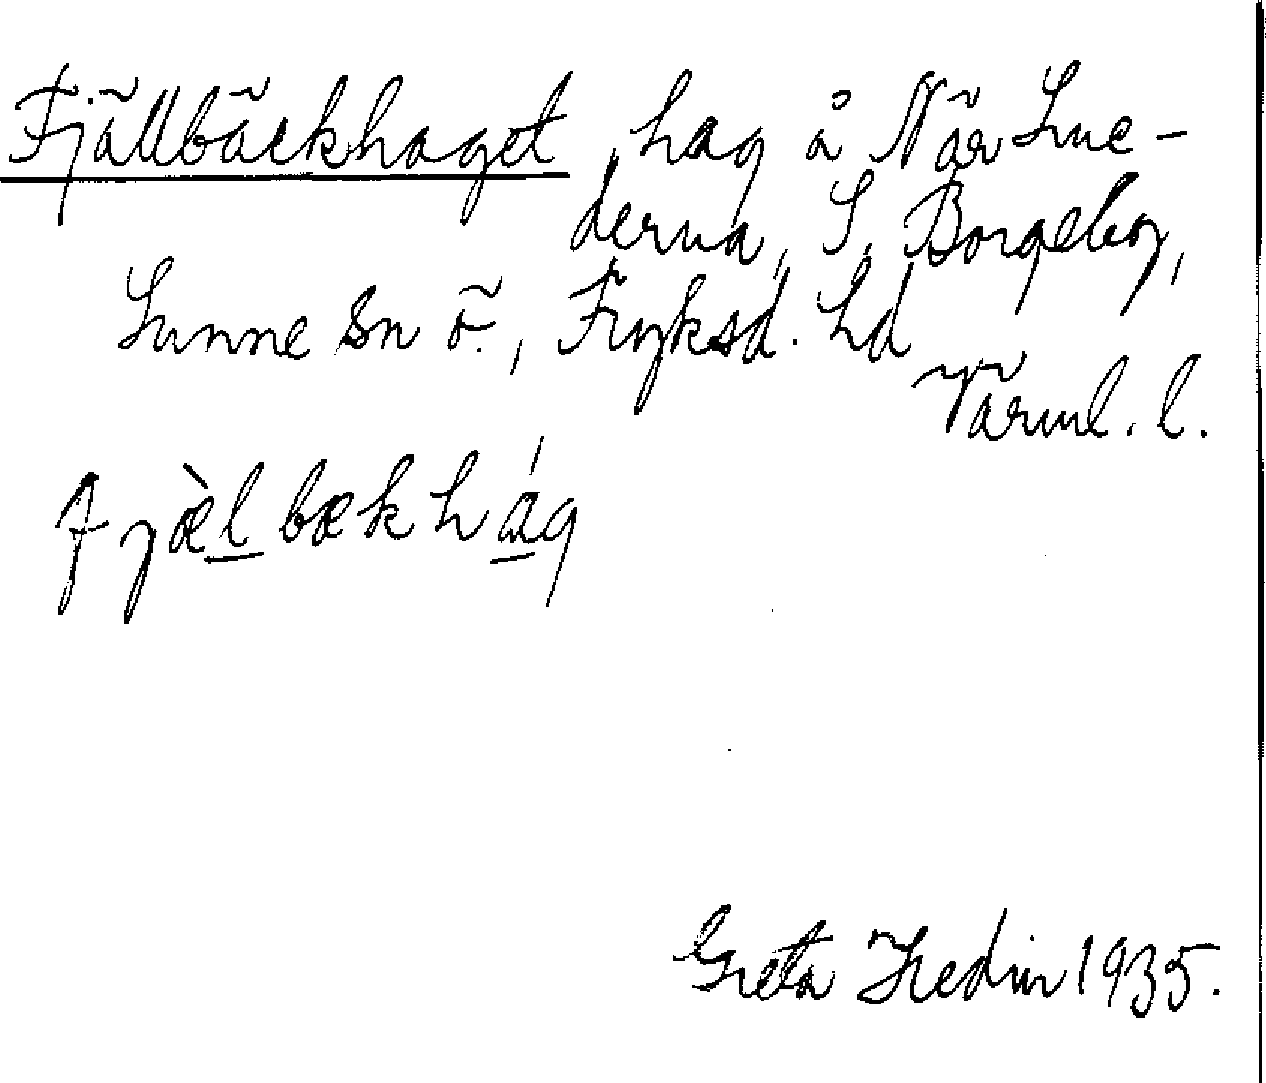 Fjällbäckhaget, hag å När Lue-
derna, S. Borgeby,
Sunne sn ö., Fryksd. hd
Värml. l.
fjæ̀l bækhág
Greta Hedin 1935.